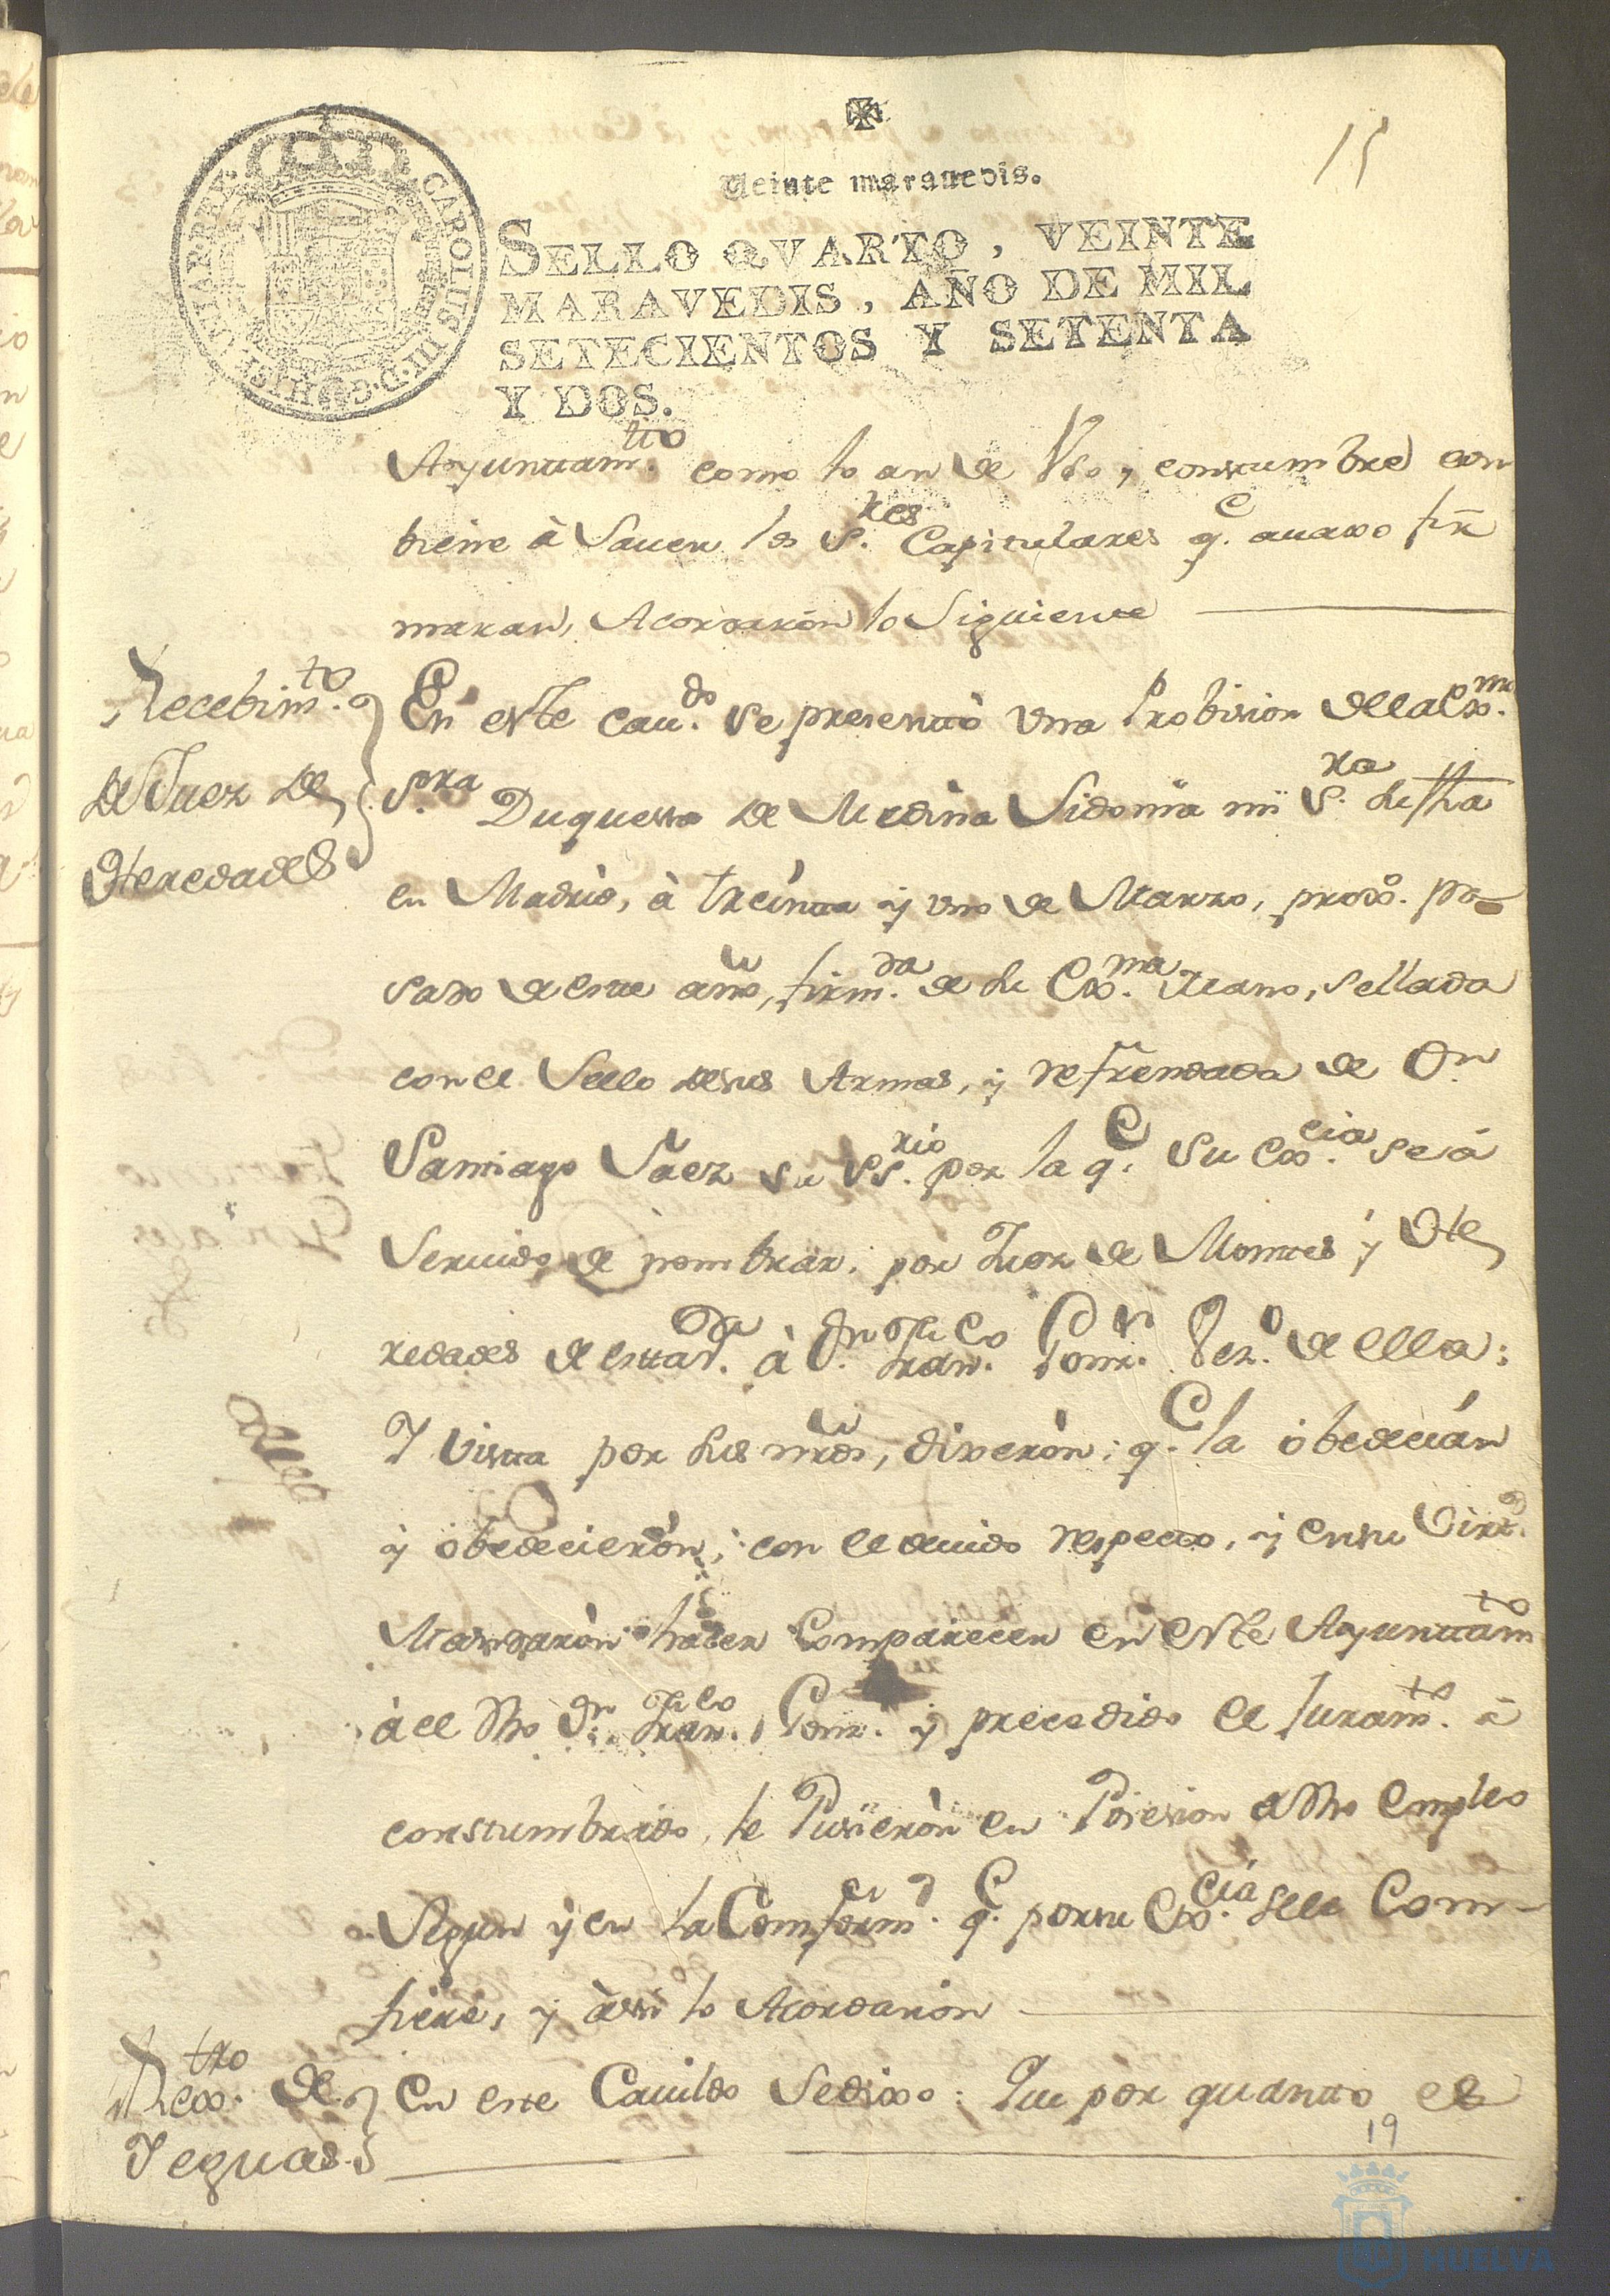 15
Veinte maravedis.
SELLO QVARTO, VEINTE
MARAVEDIS, AÑO DE MIL
SETECIENTOS Y SETENTA
Y DOS.
CAROLUS III D.G. HISPANIAR. REX
Ayuntam.to como lo an de Vso, y constumbre con
biene à Sauer los S.res Capitulares q.e auaxo fir
maran, Acordaron lo Siguiente
Recebim.to
de Juez de
Heredades
En este cau.do se presentò vna Probision dela Exx.ma
S.ora Duquessa de Medina Sidonia mi S.ra su fha
en Madrid, à treinta y vno de Marzo, proxo. pa
sado de este año, firm.da de su Exx.ma Mano, sellada
con el Sello desus Armas, y refrendada de Dn
Santiago Saez su SS.rio por la q.e su Exx.cia se à
Seruido de nombrar, por Juez de Montes y He
redades de esta V.a à D.n Fran.co Pon.n Vez.o de ella:
Y vista por sus mrds, dixeron: q.e la obedecian
y obedecieron, con el deuido respecto, y en su Virt.d
Mandaron haser Comparecer en este Ayuntam.to
à el dho D.n Fran.co y precedido el Juram.to a
constumbrado, le Pusieron en Posesion de dho Empleo
Segun y en la Comform.d q.e por su Exx.cia se le Com
fiere, y àssi lo Acordaron
Rex.tro de
Yeguas
En este Cauildo Se dixo: Que por quanto es
19
HUELVA